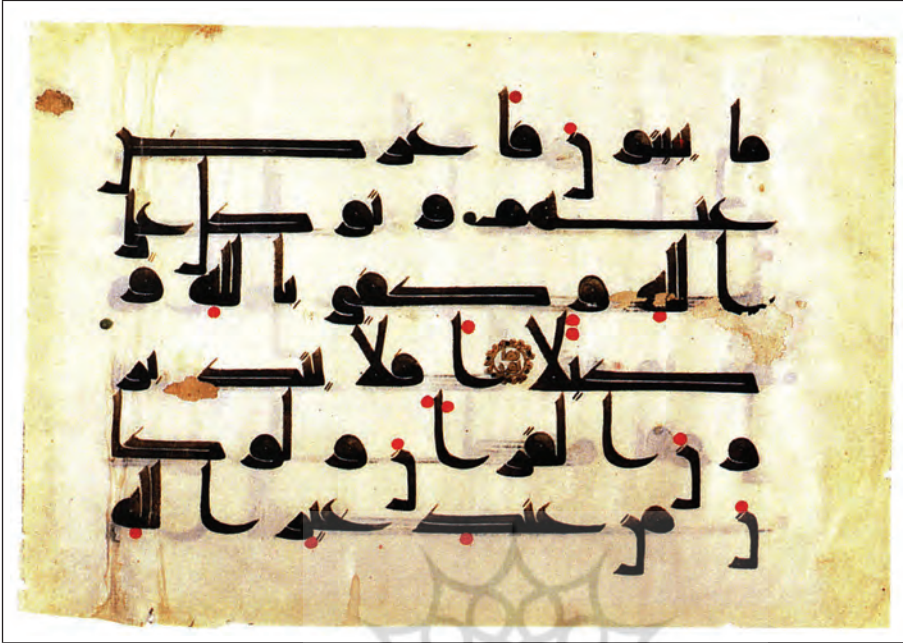 ما يبيتون فاعرض
عنهم و توكل على
الله وكفى بالله و
كيلا افلا يتدبر
ون القران ولو كا
ن من عند غير الله